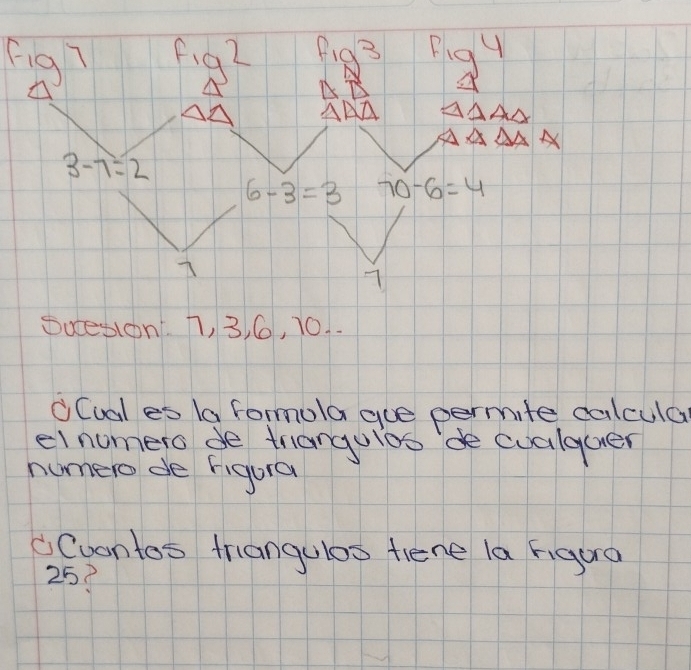 Fig 1 Fig 2 Fig 3 Fig 4
3-1=2
6-3=3 10-6=4
1 1
Sucesion: 1, 3, 6, 10..
¿Cual es la formula que permite calcular
el numero de triangulos de cualquier
numero de Figura
¿Cuantos triangulos tiene la Figura
25?